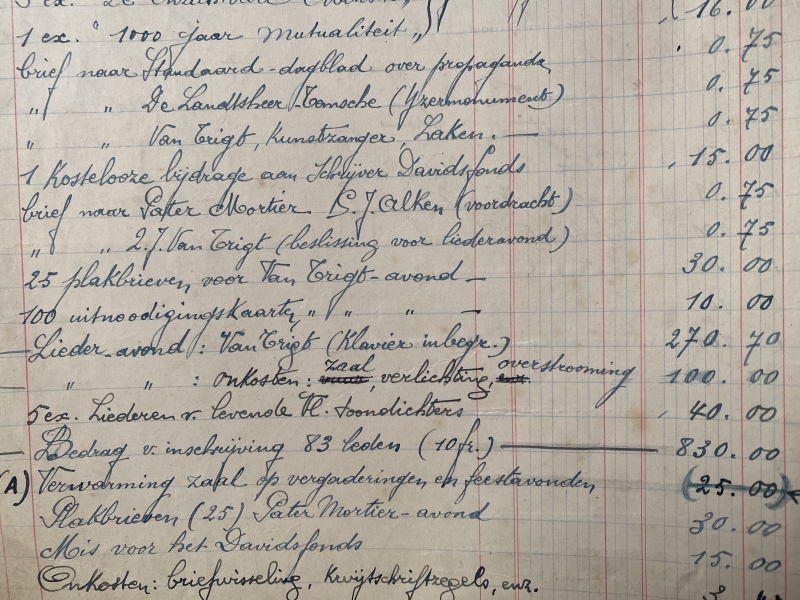 1 ex. " 1000 jaar Mutualiteit „ 16.00
brief naar Standaard-dagblad over propaganda 0.75
„ „ De Landtsheer-Temsche (Yzermonument) 0.75
„ „ Van Trigt, Kunstzanger, Laken. — 0.75
1 Kostelooze bijdrage aan Schrijver Davidsfonds 15.00
brief naar Pater Mortier S.J. Alken (voordracht) 0.75
„ „ Z.J. Van Trigt (beslissing voor liederavond) 0.75
25 plakbrieven voor Van Trigt-avond — 30.00
100 uitnoodigingskaarten „ „ „ — 10.00
Lieder-avond: Van Trigt (Klavier inbegr.) 270.70
„ „ : onkosten: zaal, verlichting, overstrooming 100.00
5 ex. Liederen v. levende Vl. toondichters 40.00
Bedrag v. inschrijving 83 leden (10 fr.) — 830.00
(A) Verwarming zaal op vergaderingen en feestavonden (25.00)
Plakbrieven (25) Pater Mortier-avond 30.00
Mis voor het Davidsfonds 15.00
Onkosten: briefwisseling, Kwijtschriftzegels, enz.